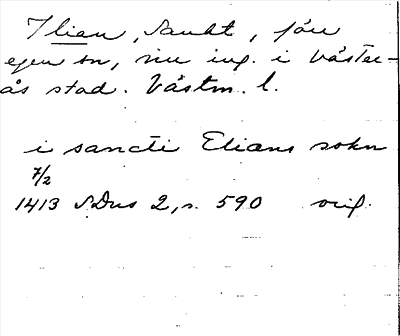 Ilian, Sankt, förr
egen sn, nu ing. i Väster-
ås stad. Västm. l.
i sancti Elians sokn
7/2
1413 SDns 2, s. 590 orig.